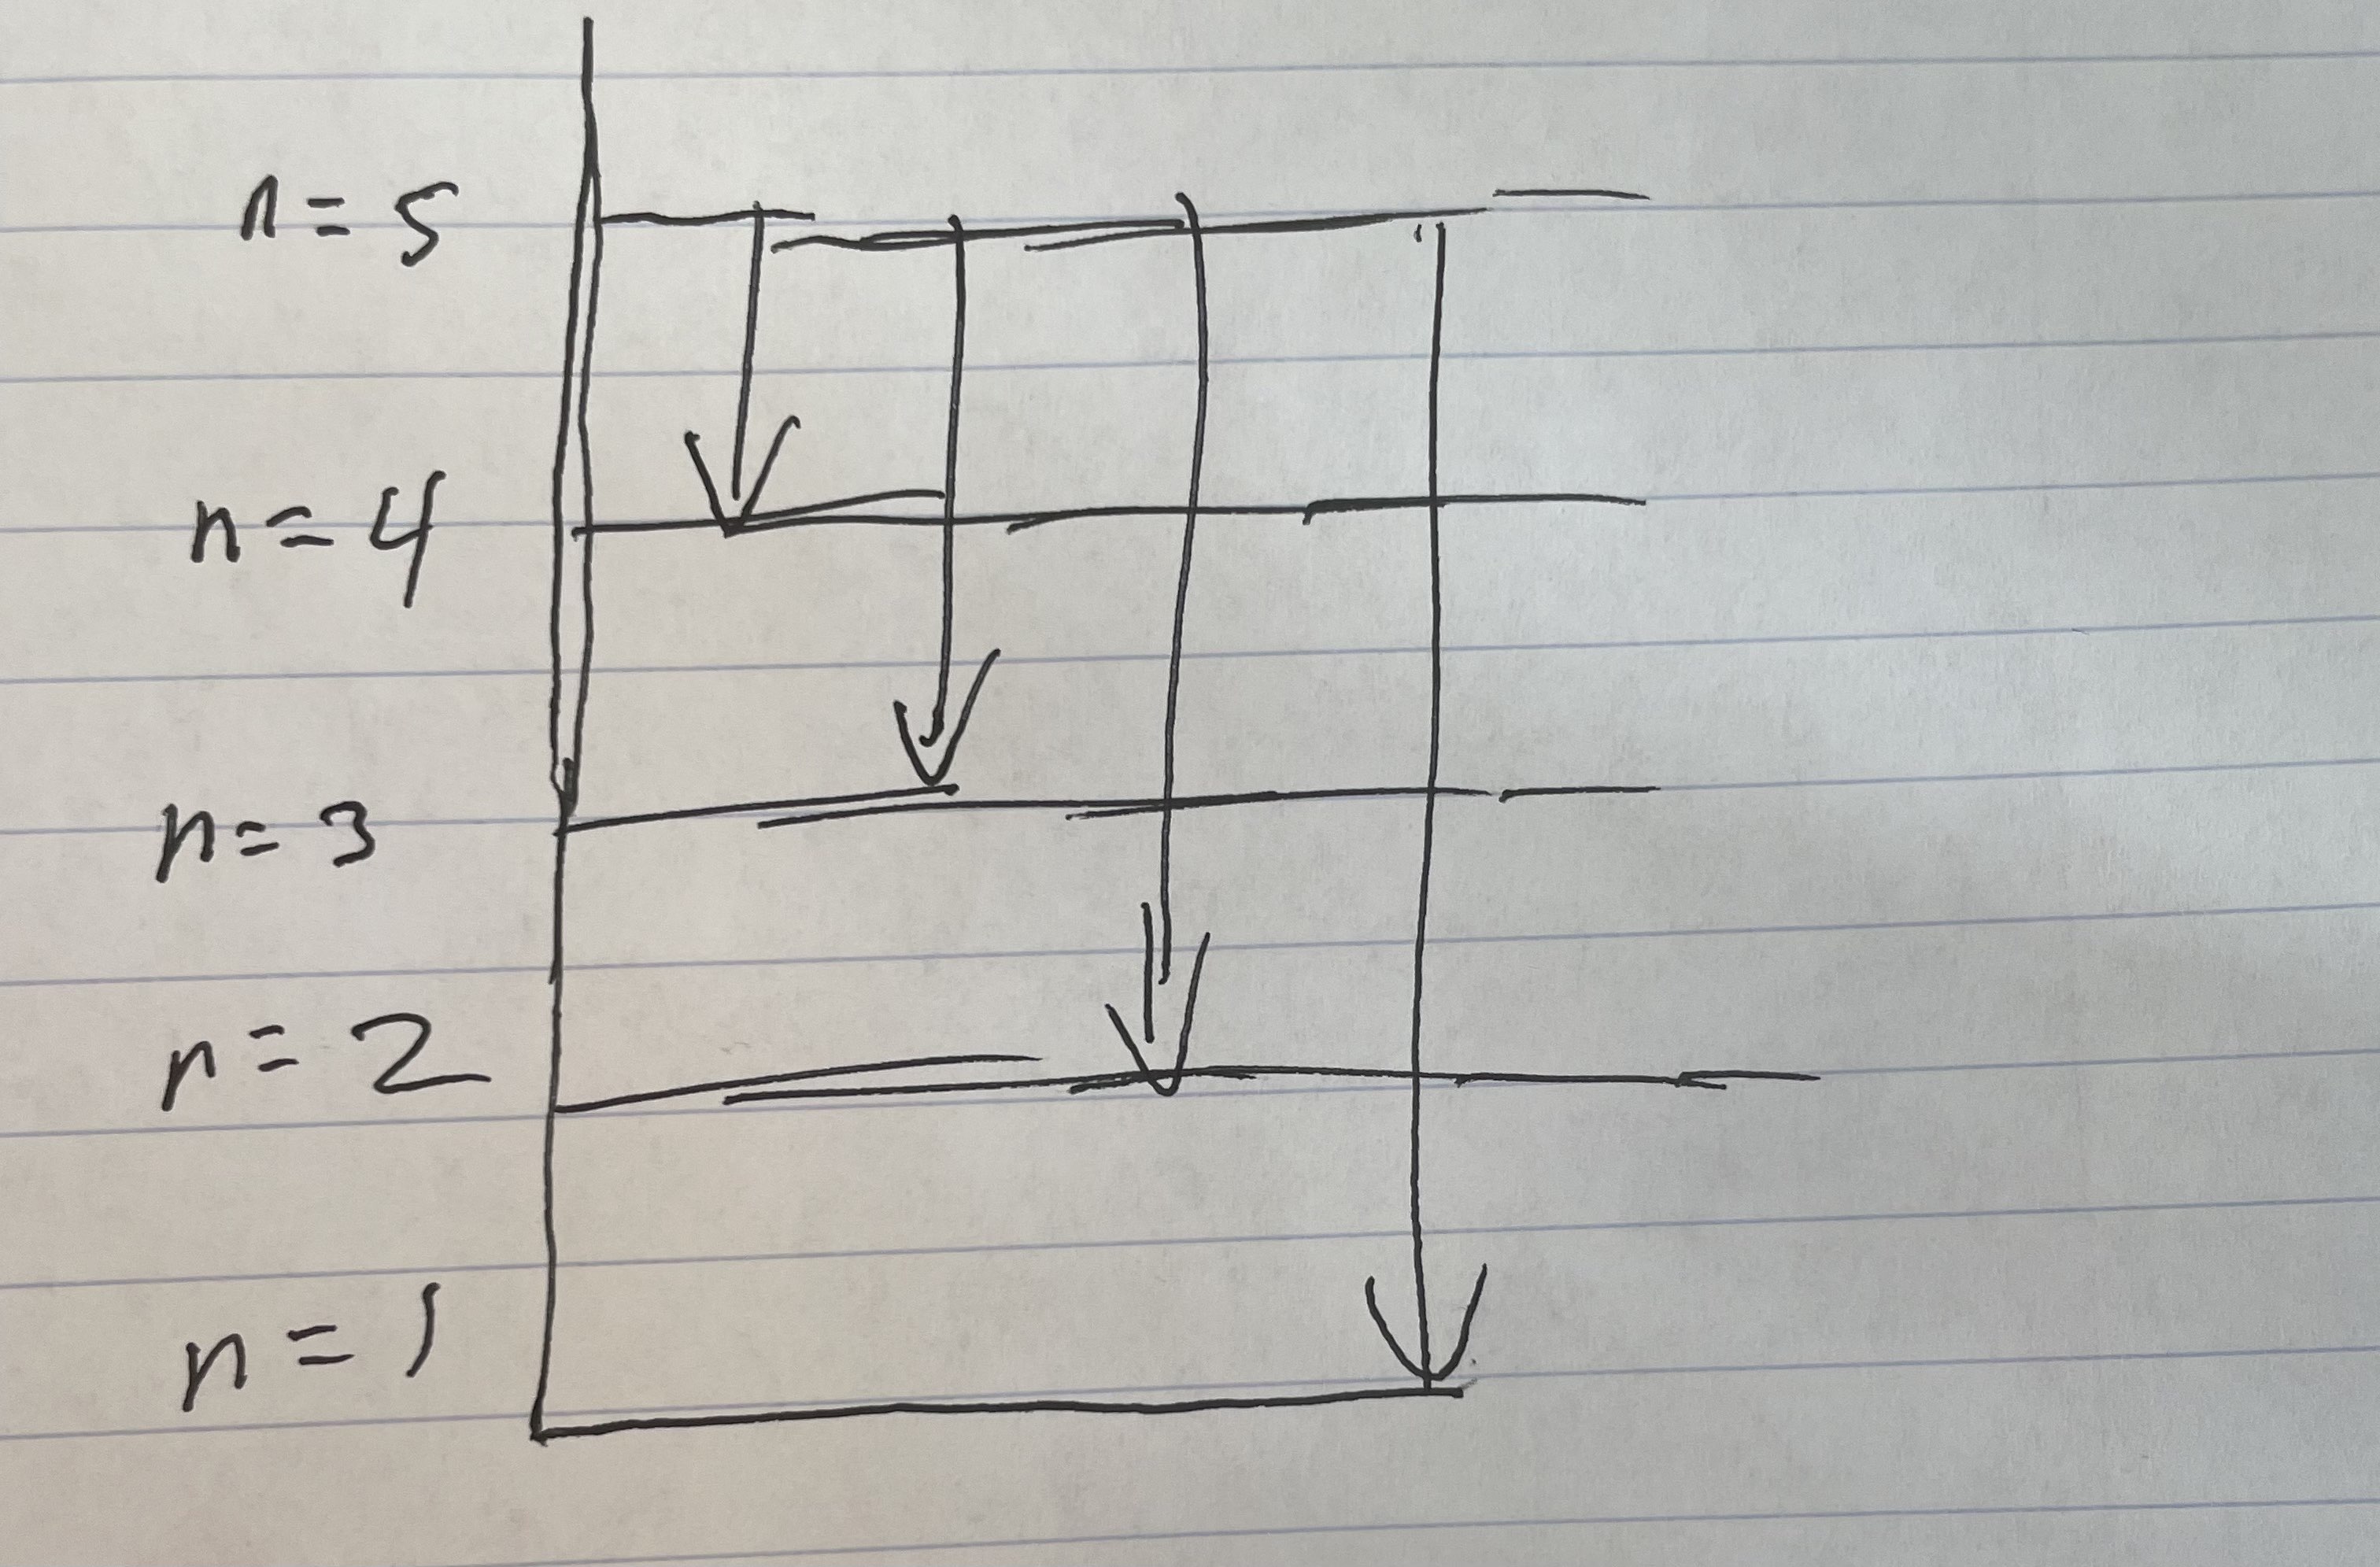 n = 5
n = 4
n = 3
n = 2
n = 1